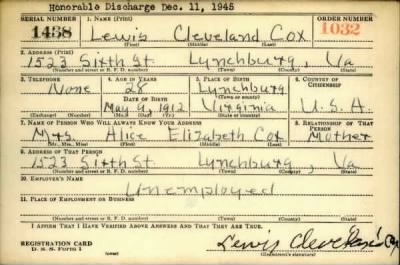 Honorable Discharge Dec. 11, 1945
SERIAL NUMBER 1. NAME (Print) ORDER NUMBER
1458 Lewis Cleveland Cox 1032
(First) (Middle) (Last)
2. ADDRESS (Print)
1523 Sixth St. Lynchburg Va
(Number and street or R. F. D. number) (Town) (County) (State)
3. TELEPHONE 4. AGE IN YEARS 5. PLACE OF BIRTH 6. COUNTRY OF CITIZENSHIP
None 28 Lynchburg
DATE OF BIRTH (Town or county)
May 4, 1912 Virginia U.S.A.
(Exchange) (Number) (Mo.) (Day) (Yr.) (State or country)
7. NAME OF PERSON WHO WILL ALWAYS KNOW YOUR ADDRESS 8. RELATIONSHIP OF THAT PERSON
Mrs Alice Elizabeth Cox Mother
(Mr., Mrs., Miss) (First) (Middle) (Last)
9. ADDRESS OF THAT PERSON
1523 Sixth St. Lynchburg, Va
(Number and street or R. F. D. number) (Town) (County) (State)
10. EMPLOYER'S NAME
Unemployed
11. PLACE OF EMPLOYMENT OR BUSINESS
(Number and street or R. F. D. number) (Town) (County) (State)
I AFFIRM THAT I HAVE VERIFIED ABOVE ANSWERS AND THAT THEY ARE TRUE.
REGISTRATION CARD
D. S. S. Form 1 Lewis Cleveland Cox
(Registrant's signature)